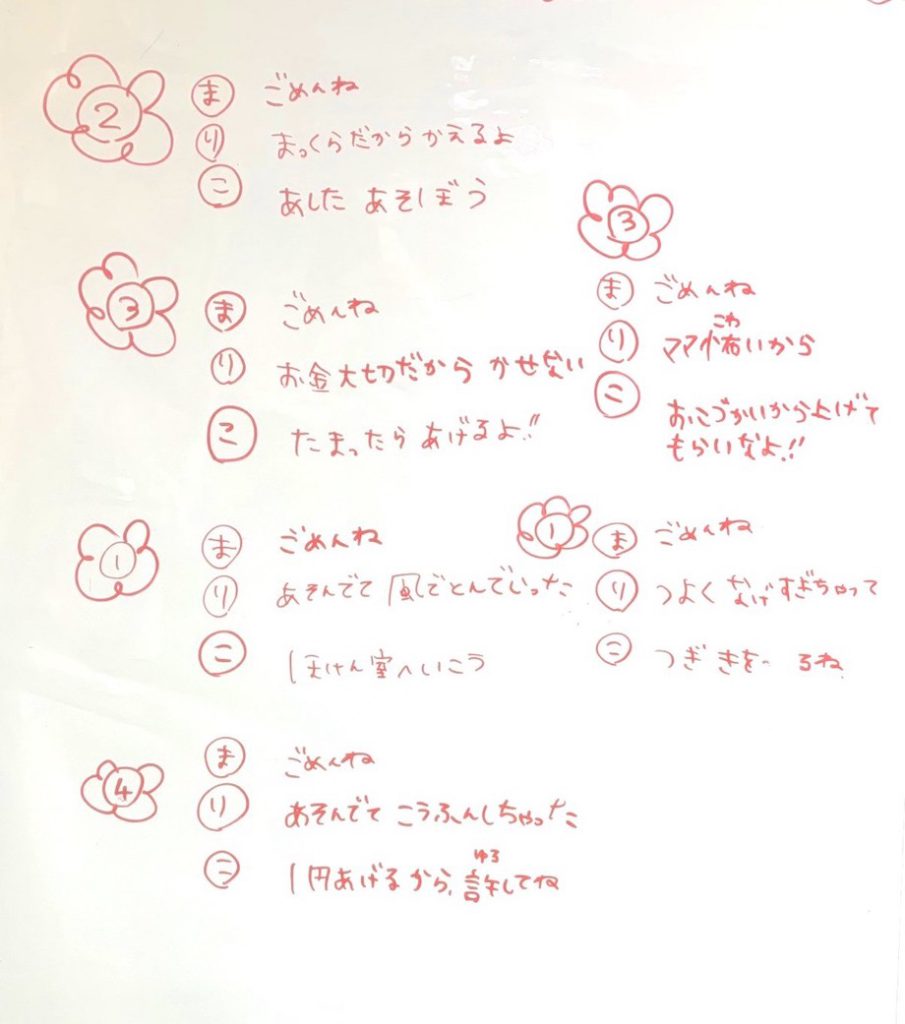 2
ま ごめんね
り まっくらだからかえるよ
こ あした あそぼう
3
ま ごめんね
り お金大切だから かせない
こ たまったら あげるよ!!
3
ま ごめんね
こわ
り ママ怖いから
こ おこづかいから上げて
もらいなよ!!
1
ま ごめんね
り あそんでて 風でとんでいった
こ ほけん室へいこう
1
ま ごめんね
り つよく なげすぎちゃって
こ つぎ きを
4
ま ごめんね
り あそんでて こうふんしちゃった
ゆる
こ 1円あげるから、許してね